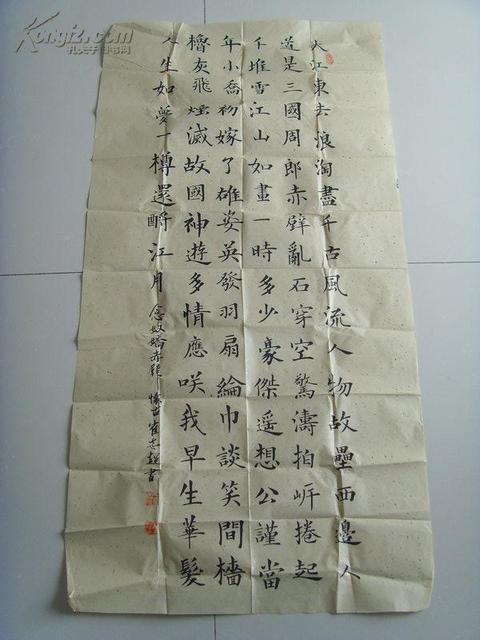 大江東去浪淘盡千古風流人物故壘西邊人
道是三國周郎赤壁亂石穿空驚濤拍岍捲起
千堆雪江山如畫一時多少豪傑遥想公謹當
年小喬初嫁了雄姿英發羽扇綸巾談笑間檣
櫓灰飛煙滅故國神遊多情應咲我早生華髮
人生如夢一樽還酹江月 念奴嬌赤壁懷古 志超書
Kongfz.com
孔夫子旧书网